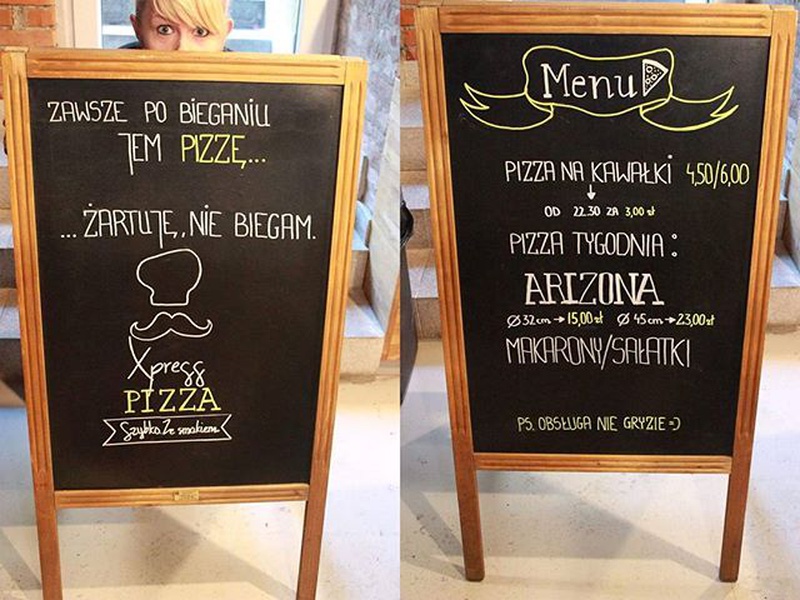 ZAWSZE PO BIEGANIU
JEM PIZZĘ...
...ŻARTUJĘ, NIE BIEGAM.
Xpress
PIZZA
Szybko. Ze smakiem.
Menu
PIZZA NA KAWAŁKI 4,50/6,00
OD 22.30 ZA 3,00 zł
PIZZA TYGODNIA:
ARIZONA
Ø 32cm → 15,00 zł Ø 45cm → 23,00 zł
MAKARONY/SAŁATKI
PS. OBSŁUGA NIE GRYZIE =)